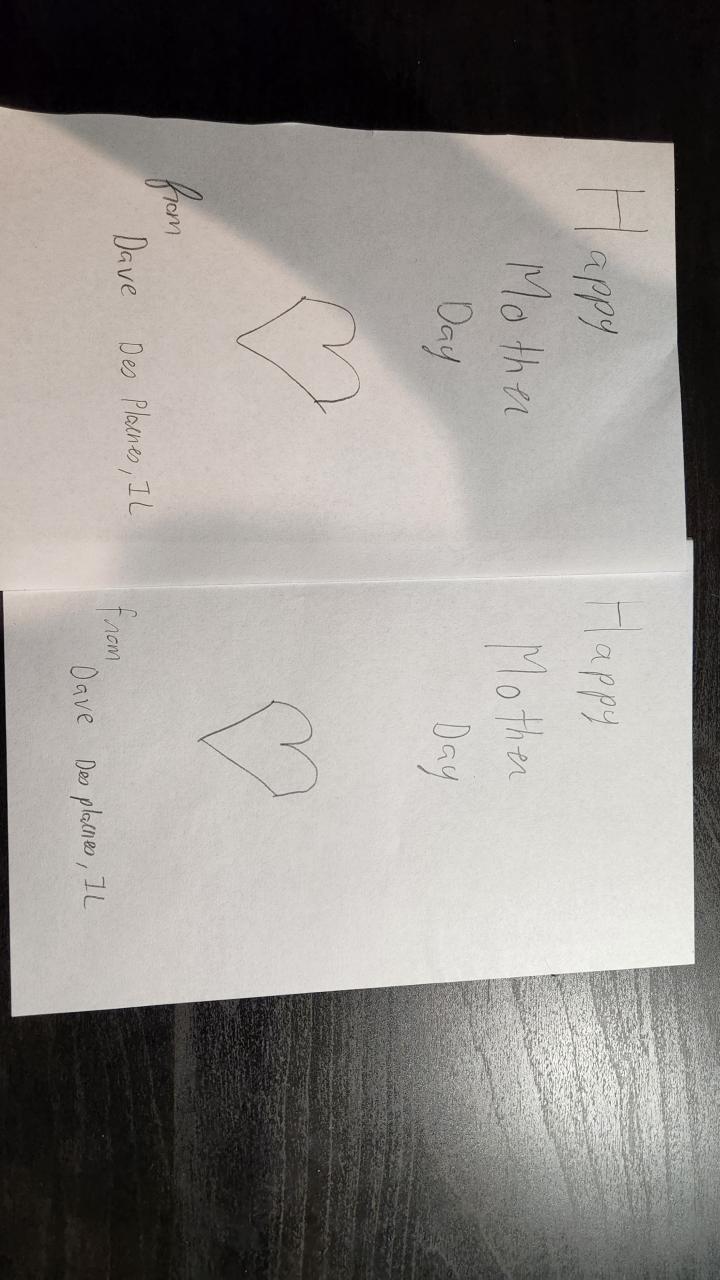 Happy
Mother
Day
from
Dave Des Plaines, IL
Happy
Mother
Day
from
Dave Des plaines, IL